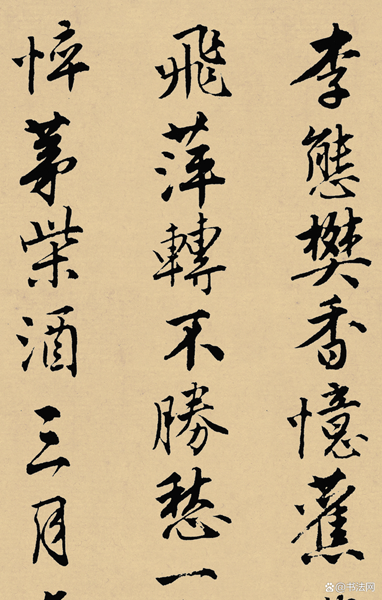 李態樊香憶舊
飛萍轉不勝愁一
悴茅柴酒三月
@书法网